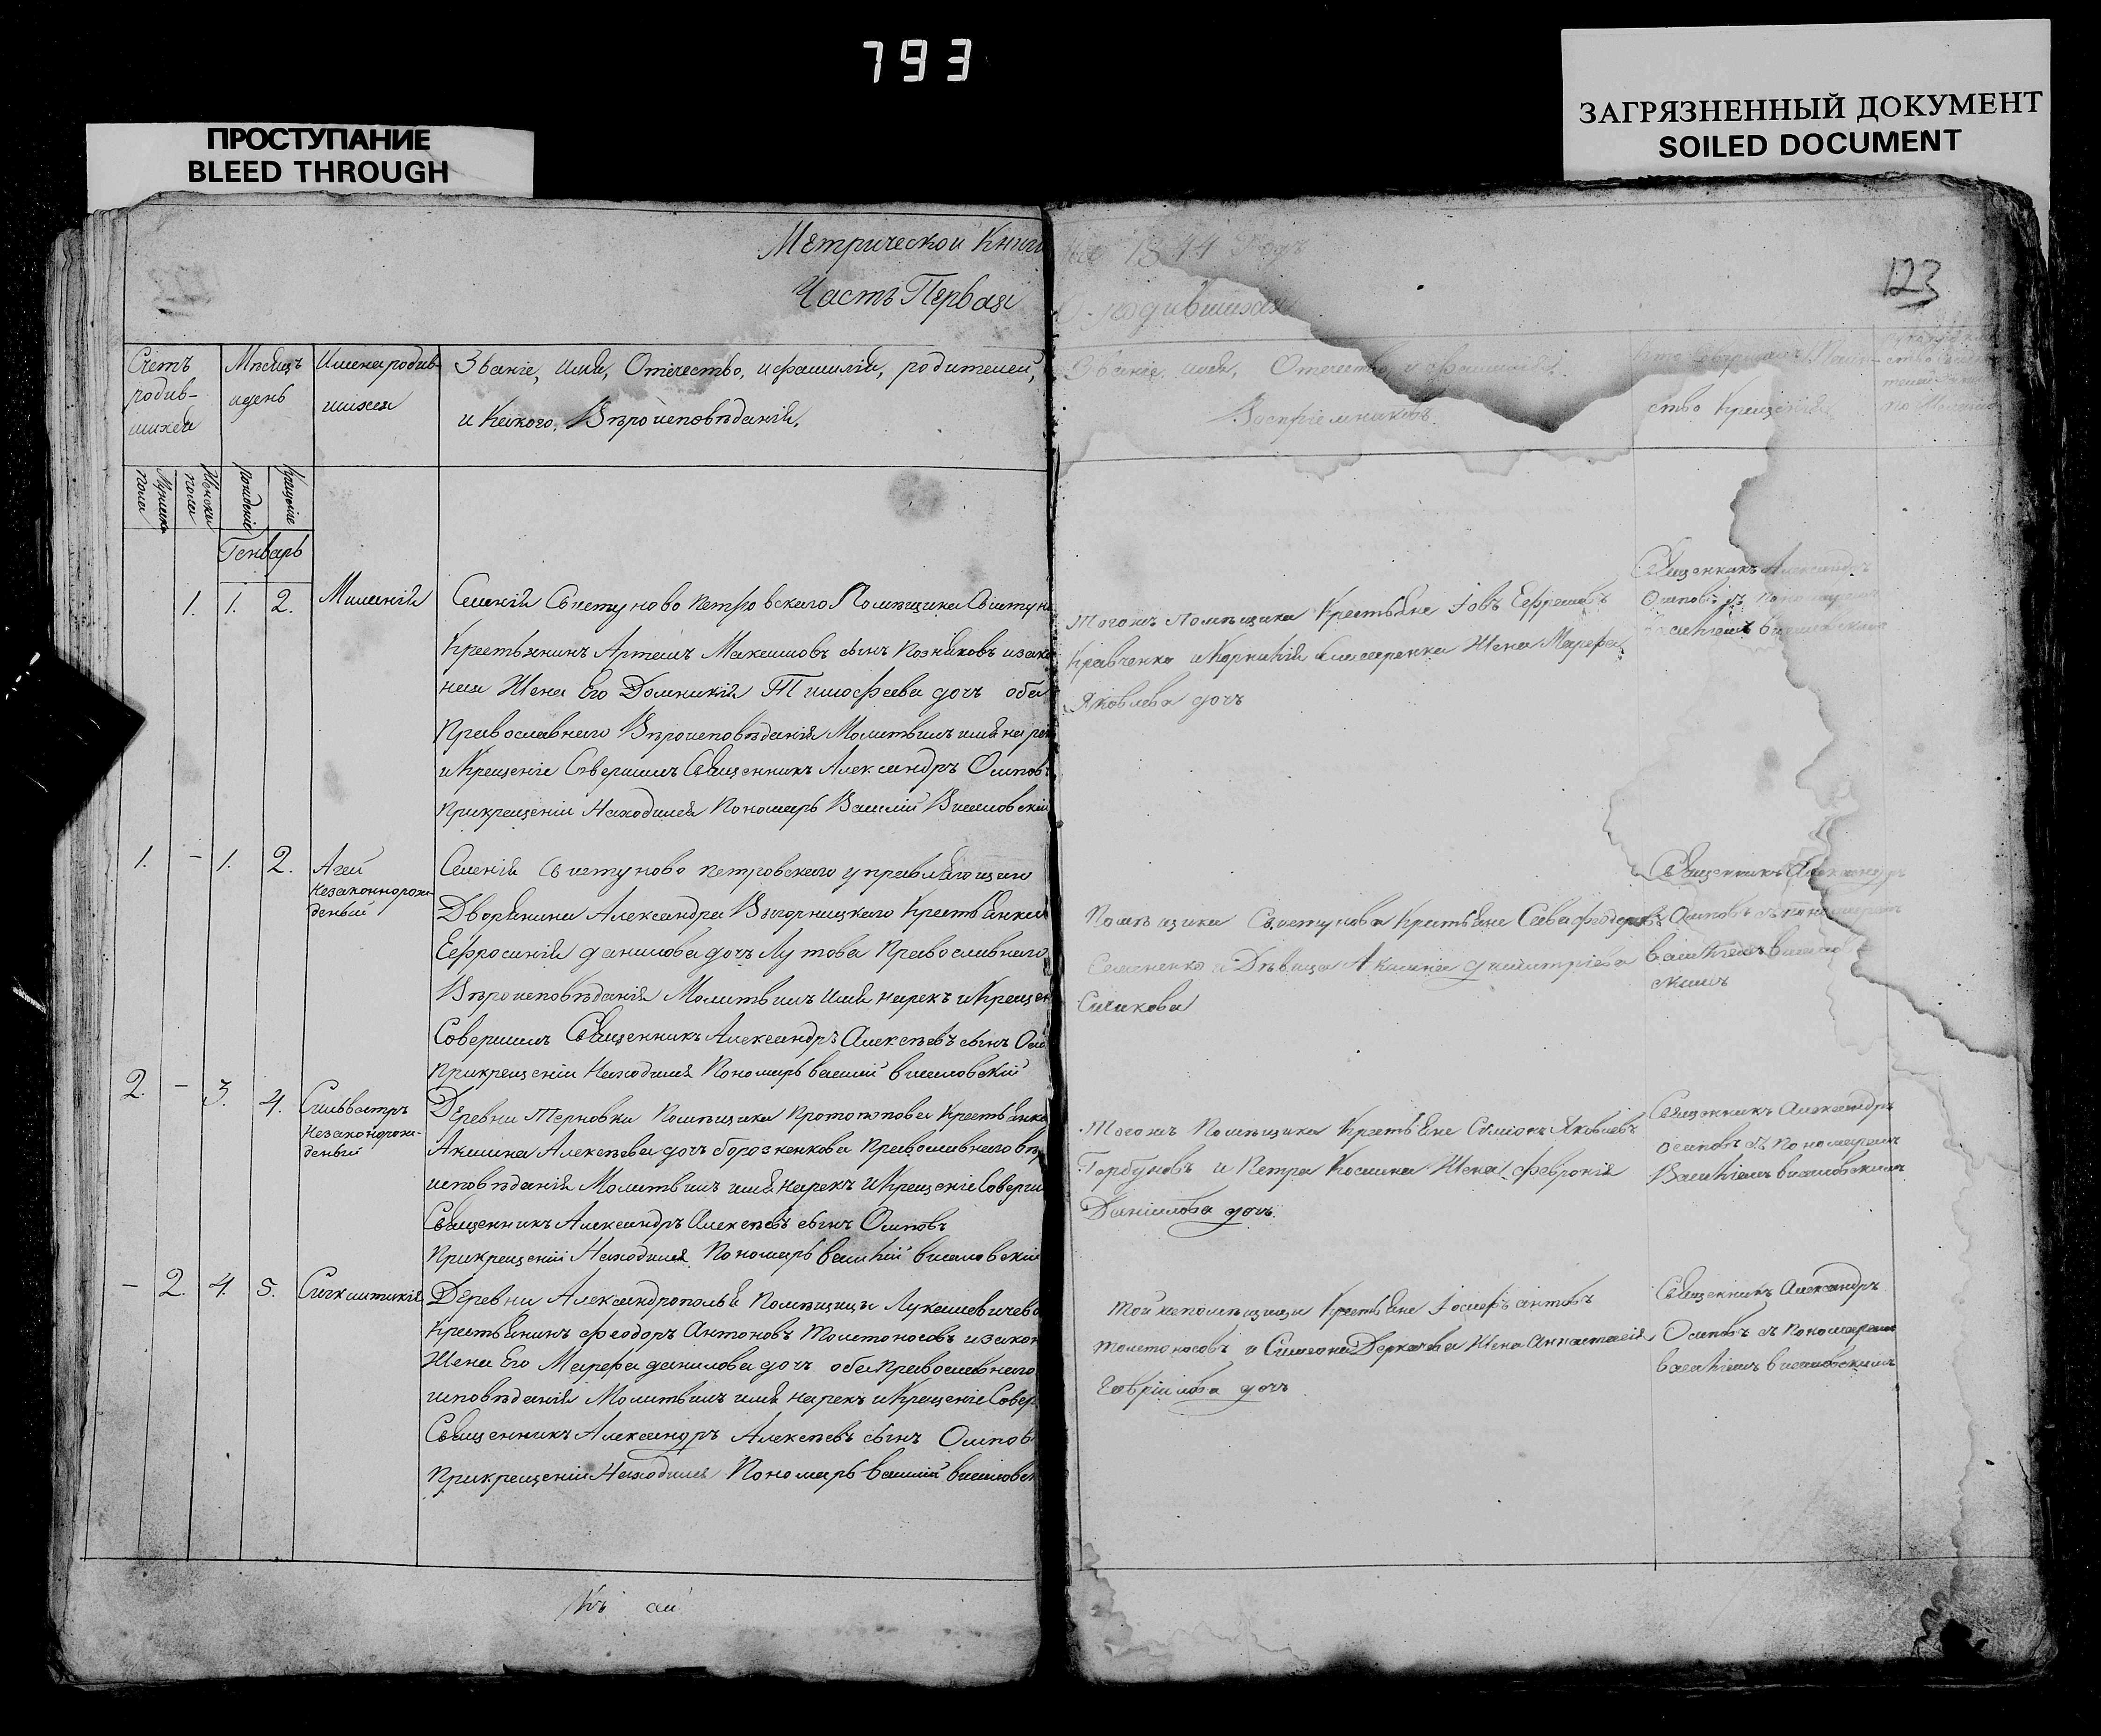 793
ПРОСТУПАНИЕ
BLEED THROUGH
ЗАГРЯЗНЕННЫЙ ДОКУМЕНТ
SOILED DOCUMENT
123
Метрической Книги
на 1844 Годъ
Часть Первая
О родившихся
Счетъ
родив-
шихся
Мѣсяцъ
и день
Имена родив-
шихся
Званіе, имя, Отечество, и фамилія, родителей,
и Какого, Вѣроисповѣданія,
Званіе, имя, Отечество, и фамилія
Воспріемниковъ
Кто совершалъ Таин-
ство Крещенія
Мужска
пола
Женска
пола
рожденіе
Крещеніе
Генварь
1. 1. 2. Миланія
Селенія Свистуново Петровского Помѣщика Свистуно
Крестьянинъ Артемъ Максимовъ сынъ Позняковъ и зако
ная Жена Его Домникія Тимофеева дочь оба
Православнаго Вѣроисповѣданія Молитвилъ имя нарек
и Крещеніе Совершилъ Священникъ Александръ Осипов
При крещеніи Находился Пономарь Василій Висиловскій
Тогожъ Помѣщика Крестьяне Іовъ Ефремовъ
Кравченко и Корнилія Слюсаренка Жена Марефа
Яковлева дочь
Священникъ Александръ
Осиповъ съ Пономаремъ
1. - 1. 2. Агей
Незаконнорож-
деный
Селенія Свистуново Петровского управляющаго
Дворянина Александра Выгорницкаго Крестьянки
Ефросинія данилова дочь Лутова Православнаго
Вѣроисповѣданія Молитвилъ имя нарекъ и Крещен
Совершилъ Священникъ Александръ Алексѣевъ сынъ Оси
При крещеніи Находился Пономарь василій висиловскій
Помѣщика Свистунова Крестьяне Сава федоровъ
Семененко и Дѣвица Акилина димитріева
Силикова
Священникъ Александръ
Осиповъ съ пономаремъ
василіемъ висилов
скимъ
2. - 3. 4. Сильвестръ
Незаконорож-
деный
Деревни Терновки Помѣщика Протопопова Крестьянка
Акилина Алексѣева дочь борозенкова Православнаго вѣр
исповѣданія Молитвилъ имя нарекъ и Крещеніе Соверши
Священникъ Александръ Алексѣевъ сынъ Осиповъ
При крещеніи Находился Пономарь василій висиловскій
Тогожъ Помѣщика Крестьяне Симіонъ Яковлевъ
Горбуновъ и Петра Косина Жена февронія
Даніилова дочь
Священникъ Александръ
осиповъ съ Пономаремъ
Василіемъ висиловскимъ
- 2. 4. 5. Сигклитикія
Деревни Александрополья Помѣщицы Лукашевичево
Крестьянинъ феодоръ Антоновъ Толстоносовъ и закон
Жена Его Марефа данилова дочь оба Православнаго
исповѣданія Молитвилъ имя нарекъ и Крещеніе Совер
Священникъ Александръ Алексѣевъ сынъ Осипов
При крещеніи Находился Пономарь василій висиловск
Той же помѣщицы Крестьяне Іосифъ антовъ
толстоносовъ и Симеона Деркачева Жена Аннастасія
Гавріилова дочь
Священникъ Александръ
Осиповъ съ Пономаремъ
василіемъ висиловскимъ